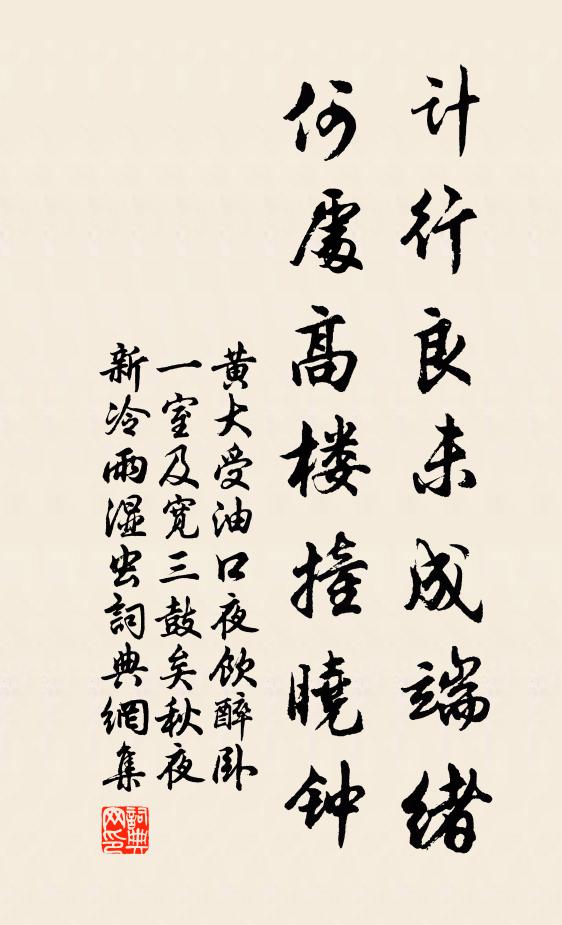 计行良未成端绪
何處高楼撞曉钟
黄大受油口夜饮醉卧
一室及寛三鼓矣秋夜
新冷雨湿虫詞典網集
詞典
网印